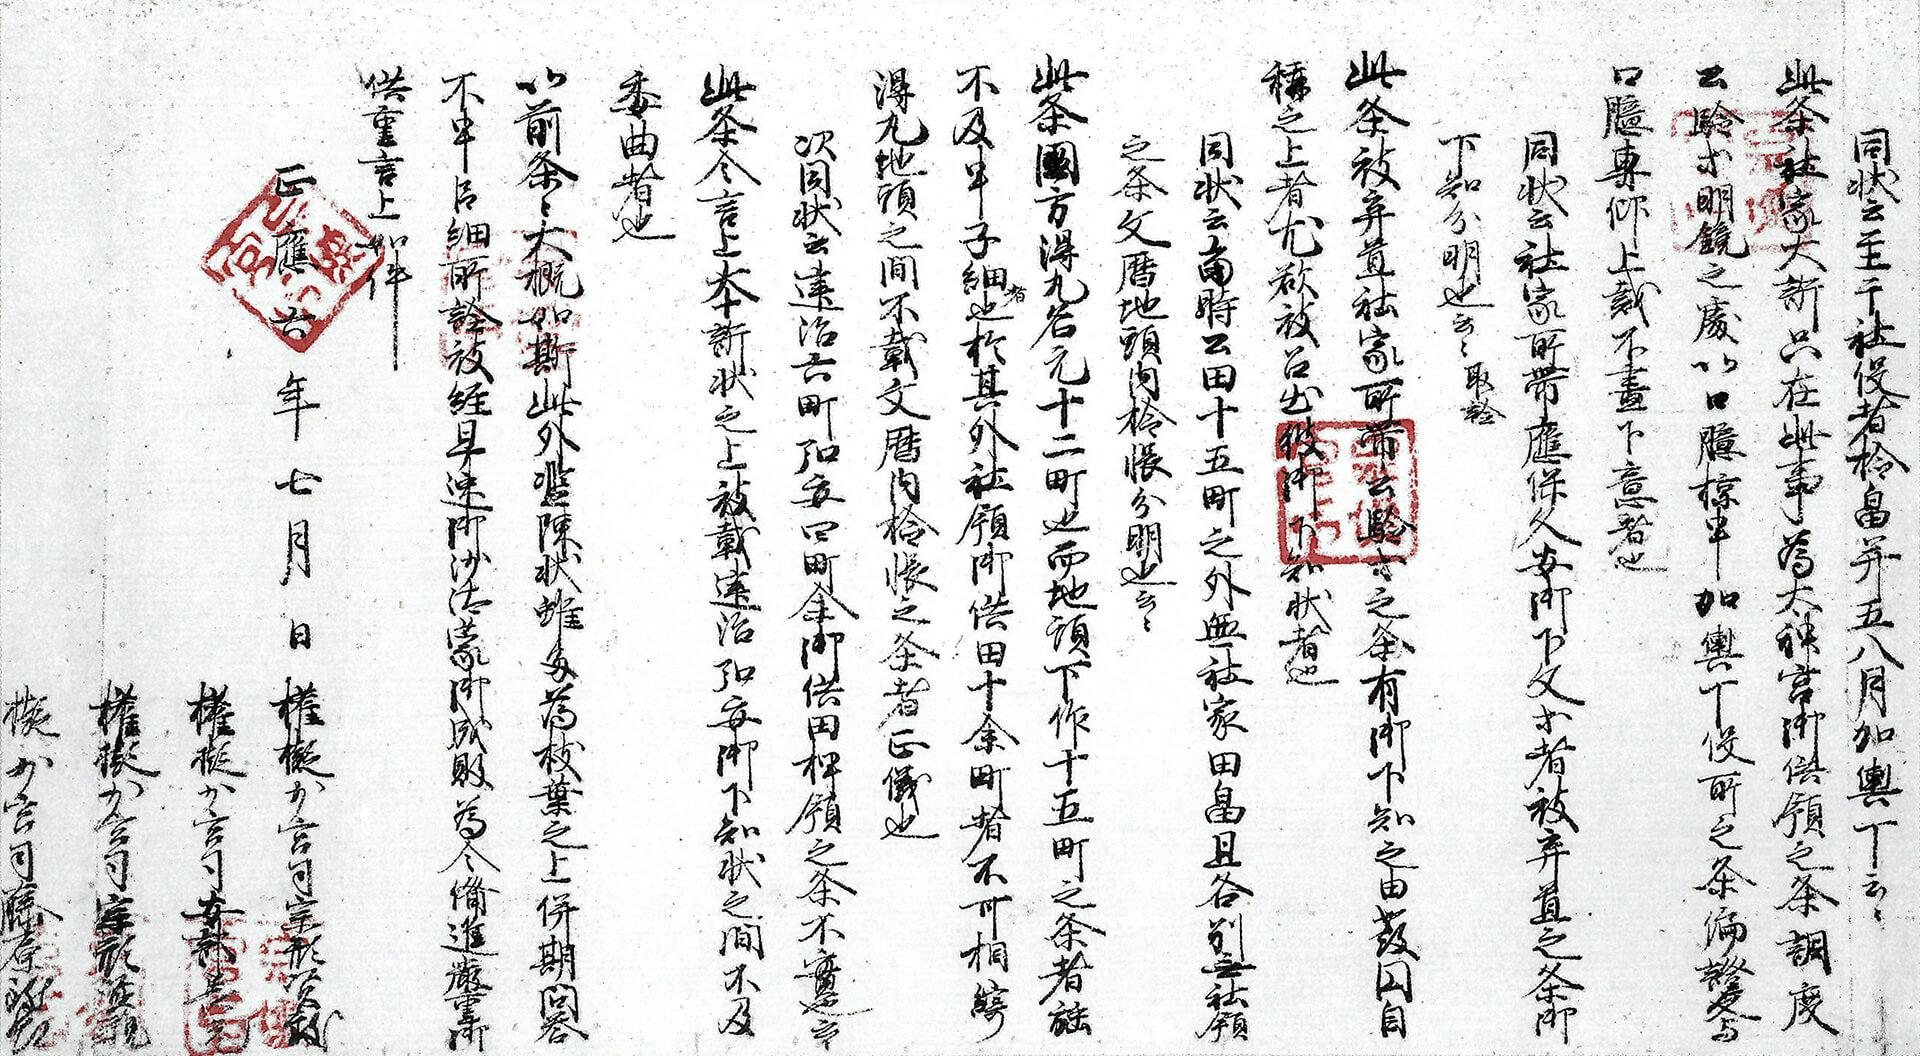 同状云至于社役者検畠并五八月加輿丁云々
此条社家大訴只在此事為大神宮御供領之条調度
公験等明鏡之処以口臆掠申加輿丁役所之条偏
口臆専仰上裁不尽下意者也
同状云社家所帯応保久安御下文等者被弃置之条御
下知分明也云々取詮
此条被弃置社家所帯公験等之条有御下知之由
称之上者尤欲被召出彼御下知状者也
同状云当時公田十五町之外無社家田畠且各別之社領
之条文暦地頭内検帳分明也云々
此条国方得丸名元十二町也而地頭下作十五町之条者
不及申子細者也於其外社領御供田十余町者不可相綺
得丸地頭之間不載文暦内検帳之条者正儀也
次同状云遠治六町弘安四町余御供田押領之条不
此条令言上本訴状之上被載遠治弘安御下知状之間不及
委曲者也
以前条々大概如斯此外濫陳状雖多為枝葉之上併期問答
不申子細所詮被経早速御沙汰蒙御成敗為令備進厳重御
供重言上如件
正応六年七月日
権擬少宮司宗形
権擬少宮司安部
権擬少宮司宗形
擬少宮司藤原